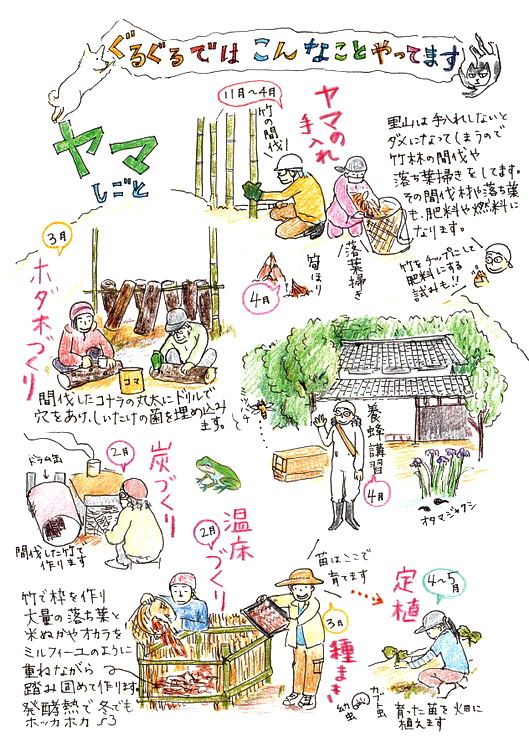 ぐるぐるでは こんなことやってます
ヤマ
しごと
11月〜4月
竹の間伐
ヤマの
手入れ
里山は手入れしないと
ダメになってしまうので
竹林の間伐や
落ち葉掃きをしてます。
その間伐材や落ち葉
も、肥料や燃料に
なります。
落葉掃き
筍ほり
4月
竹をチップにして
肥料にする
試みも!!
3月
ホダ木づくり
コマ
間伐したコナラの丸太にドリルで
穴をあけ、しいたけの菌を埋め込み
ます。
養蜂講習
4月
オタマジャクシ
ドラム缶
2月
炭づくり
間伐した竹で
作ります
2月
温床
づくり
竹で枠を作り
大量の落ち葉と
米ぬかやオカラを
ミルフィーユのように
重ねながら
踏み固めて作ります。
発酵熱で冬でも
ホッカホカ
苗はここで
育てます
3月
種まき
定植
4〜5月
カブト虫
幼虫
育った苗を畑に
植えます